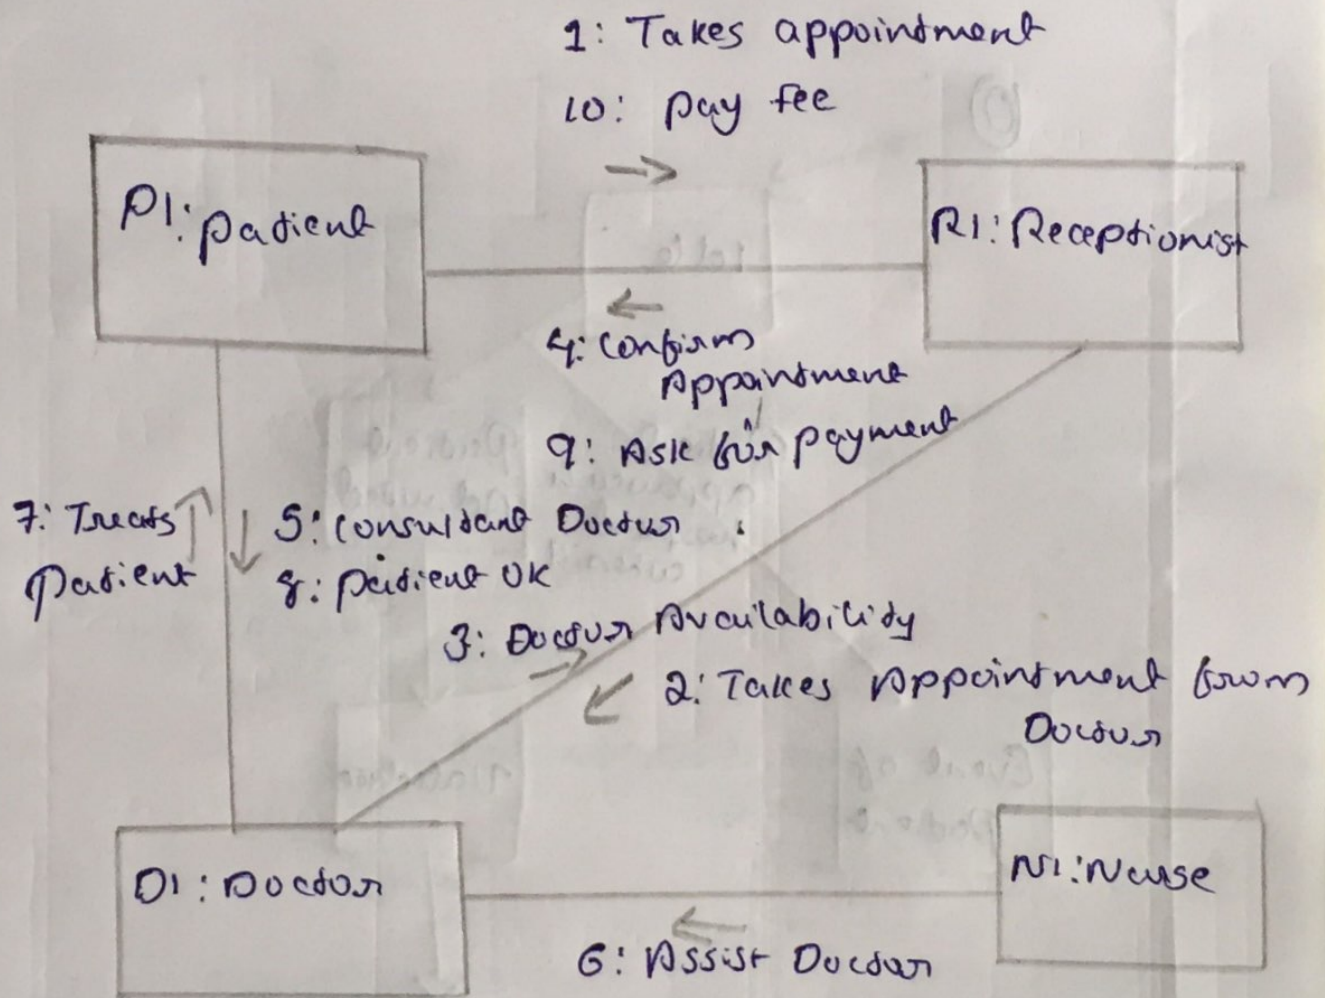 1: Takes appointment
10: pay fee
P1: patient
R1: Receptionist
4: Confirm
Appointment
9: Ask for payment
7: Treats
patient
5: Consultant Doctor
8: patient OK
3: Doctor Availability
2: Takes Appointment from
Doctor
D1: Doctor
N1: Nurse
6: Assist Doctor